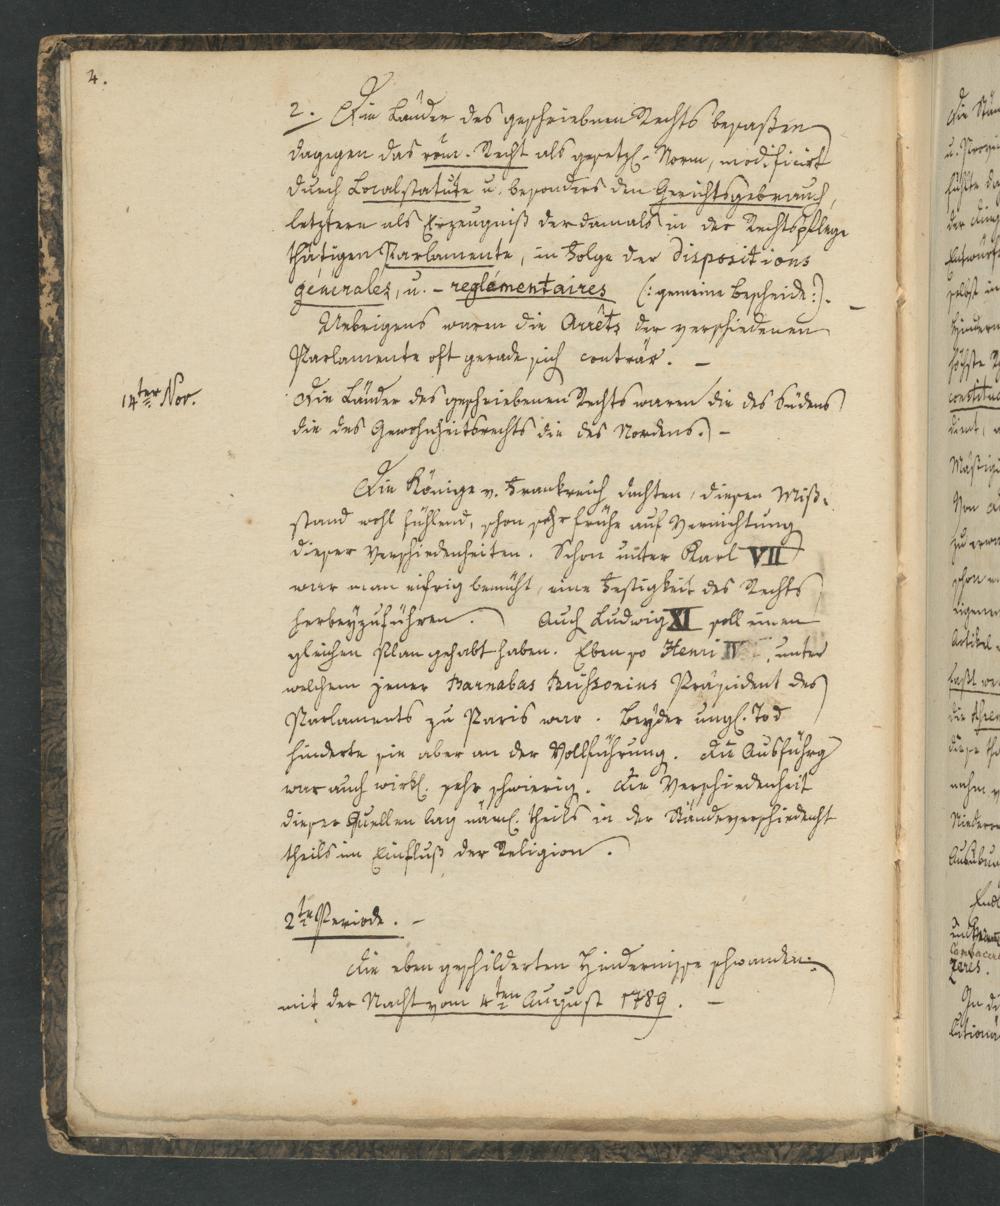 4.
2. Die Länder des geschriebenen Rechts besaßen
dagegen das röm. Recht als gesetzl. Norm, modificirt
durch Localstatute u. besonders den Gerichtsgebrauch,
letztern als Erzeugniß der damals in der Rechtspflege
thätigen Parlamente, in Folge der dispositions
générales, u. – reglémentaires (: gemeine Bescheide :). –
Uebrigens waren die Arrêts der verschiedenen
Parlamente oft gerade sich conträr. –
14ter Nov.
Die Länder des geschriebenen Rechts waren die des Südens
die des Gewohnheitsrechts die des Nordens. –
Die Könige v. Frankreich dachten, diesen Miß-
stand wohl fühlend, schon sehr frühe auf Vernichtung
dieser Verschiedenheiten. Schon unter Karl VII
war man eifrig bemüht, eine Festigkeit des Rechts
herbeyzuführen. Auch Ludwig XI soll einen
gleichen Plan gehabt haben. Eben so Henri IV, unter
welchem jener Barnabas Brissonius Präsident des
Parlaments zu Paris war. Beyder ungl. Tod
hinderte sie aber an der Vollführung. Die Ausführg
war auch wirkl. sehr schwierig. Die Verschiedenheit
dieser Quellen lag näml. theils in der Ständeverschiedenht
theils im Einfluß der Religion.
2te Periode. –
Die eben geschilderten Hindernisse schwanden
mit der Nacht vom 4ten August 1789. –